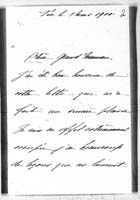 le 1 mai 1900
Chère Grand'Maman
J'ai été bien heureux de
votre lettre qui m'a
fait un plaisir
Je suis en effet extrêmement
occupé j'ai beaucoup
de leçons qui me